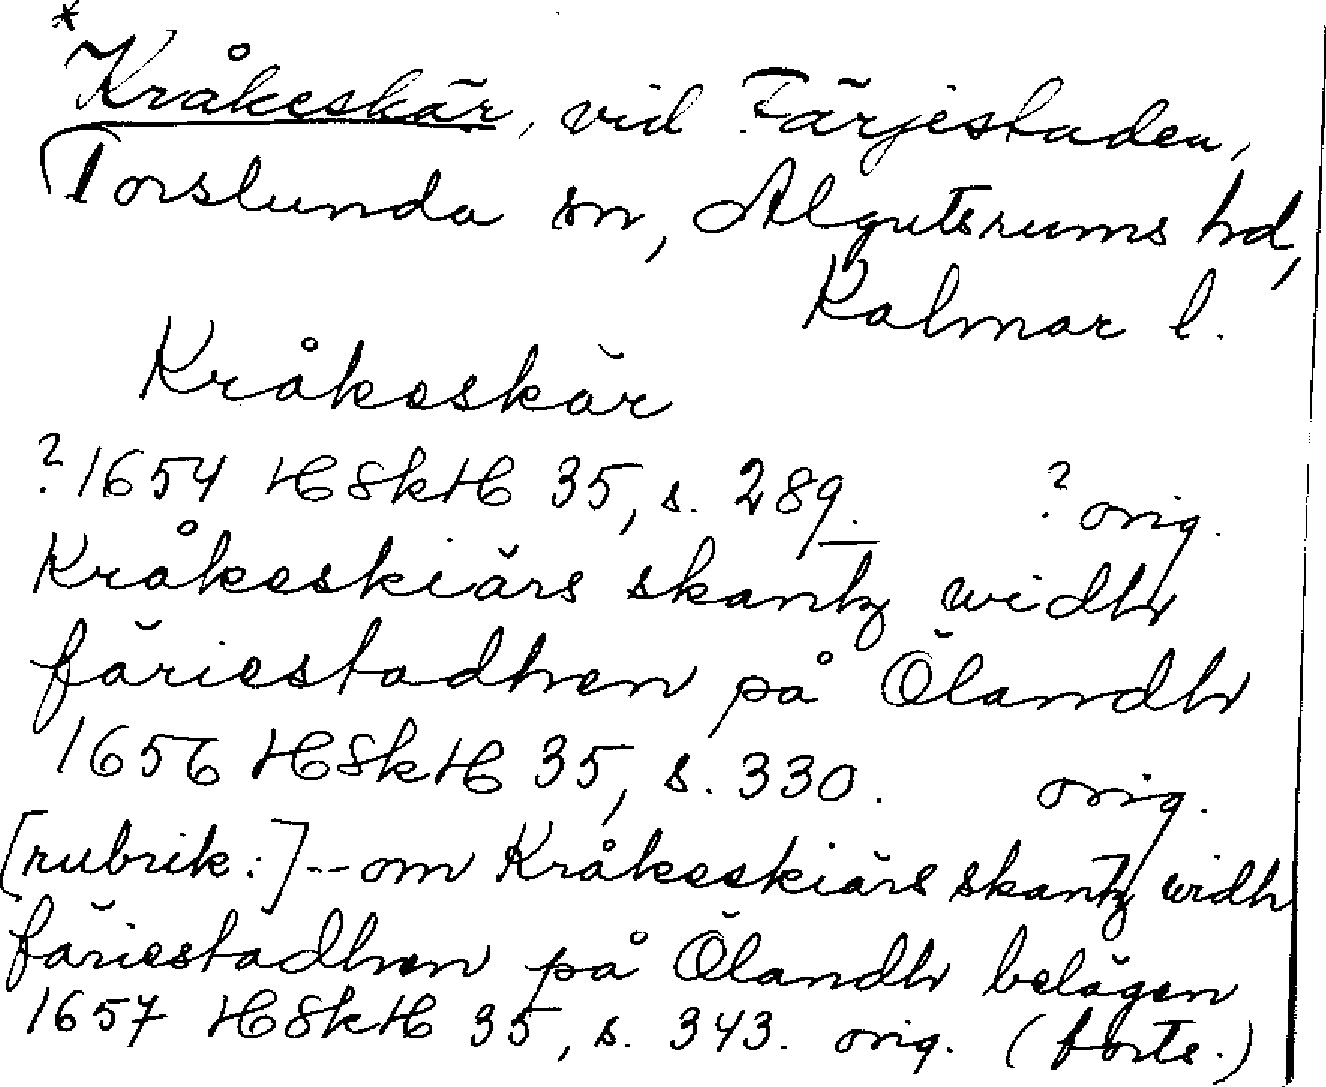 *
Kråkeskär, vid Färjestaden,
Torslunda sn, Algutsrums hd,
Kalmar l.
Kråkeskär
?1654 HSkH 35, s. 289. ? orig.
Kråkeskiärs skantz widh
färiestadhen på Ölandh
1656 HSkH 35, s. 330. orig.
[rubrik:] -- om Kråkeskiärs skantz widh
färiestadhen på Ölandh belägen
1657 HSkH 35, s. 343. orig. (forts.)